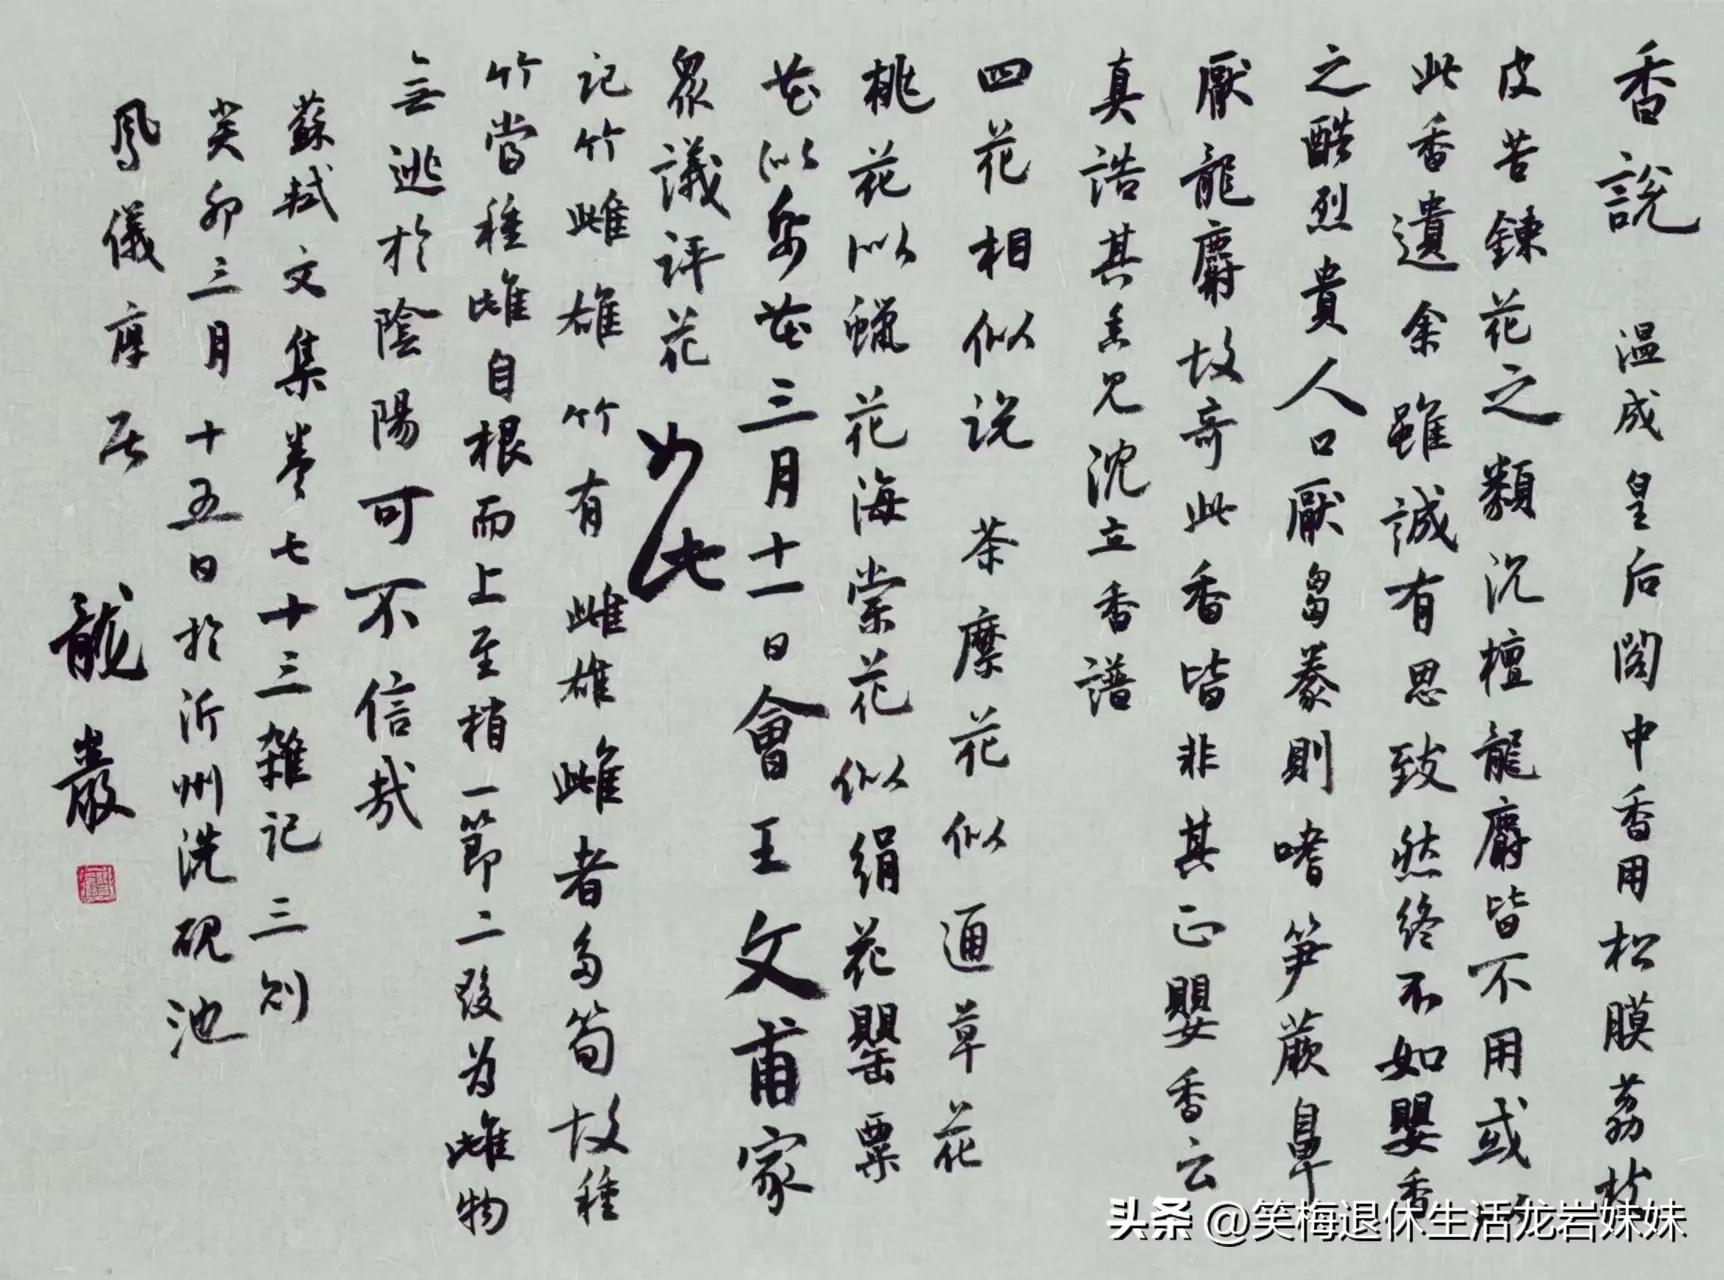 香說 温成皇后閤中香用松膜荔枝
皮苦鍊花之類沉檀龍麝皆不用或以
此香遺余雖誠有思致然終不如嬰香
之酷烈貴人口厭芻豢則嗜笋蕨鼻
厭龍麝故奇此香皆非其正嬰香云
真誥其香見沈立香譜
四花相似说 荼䕷花似通草花
桃花似蠟花海棠花似絹花罌粟
花似㡀花三月十一日會王文甫家
眾議评花如此
记竹雌雄 竹有雌雄雌者多筍故種
竹當種雌自根而上至梢一節二發为雌物
無逃於陰陽可不信哉
蘇軾文集卷七十三雜记三则
癸卯三月十五日於沂州洗硯池
鳳儀
龍巖
头条 @笑梅退休生活龙岩妹妹